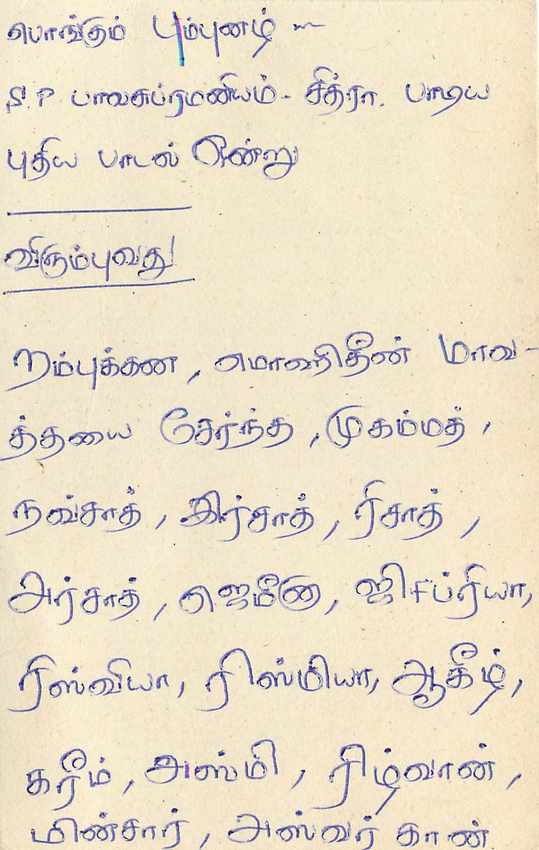 பொங்கும் பூம்புனழ் ~
S.P பாலசுப்ரமணியம் - சித்ரா. பாடிய
புதிய பாடல் ஒன்று
விரும்புவது!
றம்புக்கன, மொஹிதீன் மாவ-
த்தயை சேர்ந்த, முகம்மத்,
நவ்சாத், இர்சாத், ரிசாத்,
அர்சாத், ஜெமீனா, ஜிசப்ரியா,
ரிஸ்வியா, ரிஸ்மியா, ஆகீழ்,
கரீம், அஸ்மி, ரிழ்வான்,
மின்சார், அஸ்வர் கான்